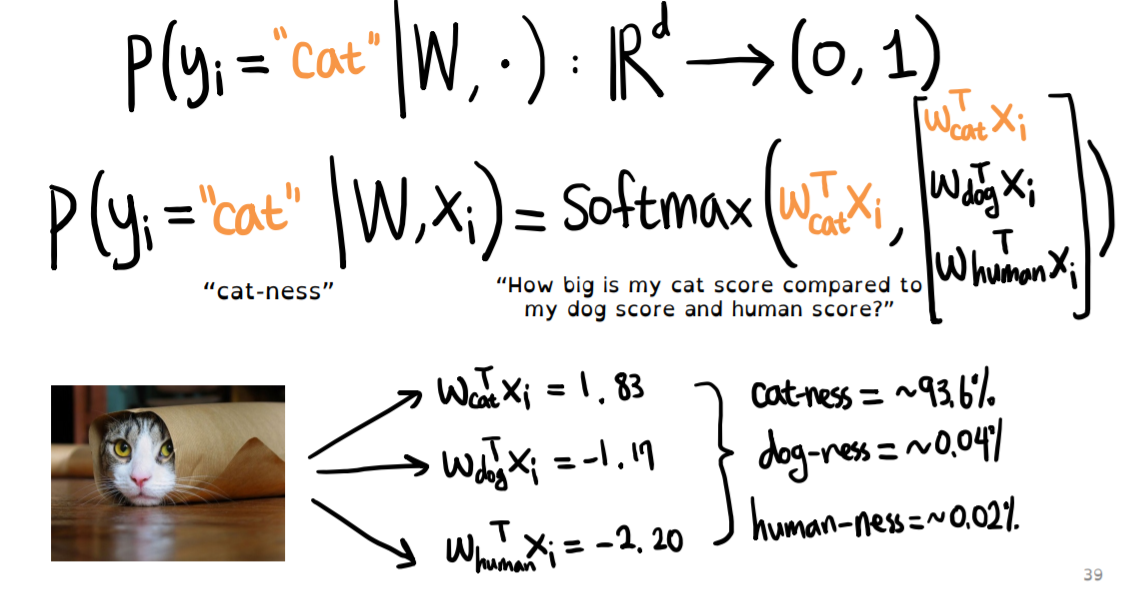 P(y_i = "cat" | W, ·) : ℝ^d → (0, 1)
P(y_i = "cat" | W, x_i) = Softmax(w_cat^T x_i, [w_cat^T x_i
w_dog^T x_i
w_human^T x_i])
“cat-ness”
“How big is my cat score compared to
my dog score and human score?”
w_cat^T x_i = 1.83
cat-ness = ~93.6%
w_dog^T x_i = -1.17
dog-ness = ~0.04%
w_human^T x_i = -2.20
human-ness = ~0.02%
39